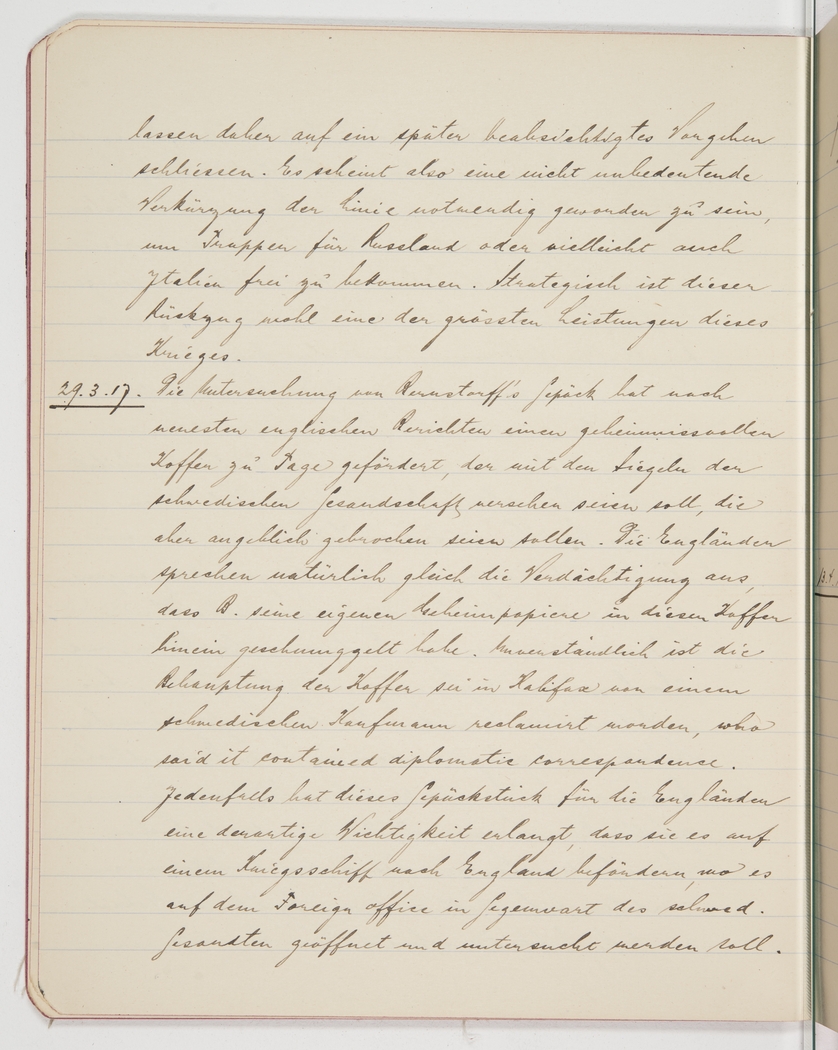 lassen daher auf ein später beabsichtigtes Vorgehen
schliessen. Es scheint also eine nicht unbedeutende
Verkürzung der Linie notwendig geworden zu sein,
um Truppen für Russland oder vielleicht auch
Italien frei zu bekommen. Strategisch ist dieser
Rückzug wohl eine der grössten Leistungen dieses
Krieges.
29.3.17. Die Untersuchung von Bernstorff's Gepäck hat nach
neuesten englischen Berichten einen geheimnissvollen
Koffer zu Tage gefördert, der mit den Siegeln der
schwedischen Gesandschaft versehen seien soll, die
aber angeblich gebrochen seien sollen. Die Engländer
sprechen natürlich gleich die Verdächtigung aus,
dass B. seine eigenen Geheimpapiere in diesen Koffer
hinein geschmuggelt habe. Unverständlich ist die
Behauptung der Koffer sei in Halifax von einem
schwedischen Kaufmann reclamirt worden, who
said it contained diplomatic correspondence.
Jedenfalls hat dieses Gepäckstück für die Engländer
eine derartige Wichtigkeit erlangt, dass sie es auf
einem Kriegsschiff nach England befördern, wo es
auf dem Foreign office in Gegenwart des schwed.
Gesandten geöffnet und untersucht werden soll.